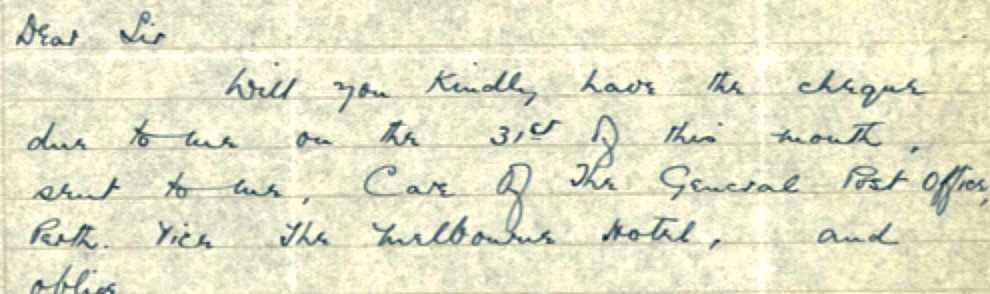 Dear Sir
Will you kindly have the cheque
due to me on the 31st of this month,
sent to me, Care of The General Post Office,
Perth. Vice The Melbourne Hotel, and
oblige